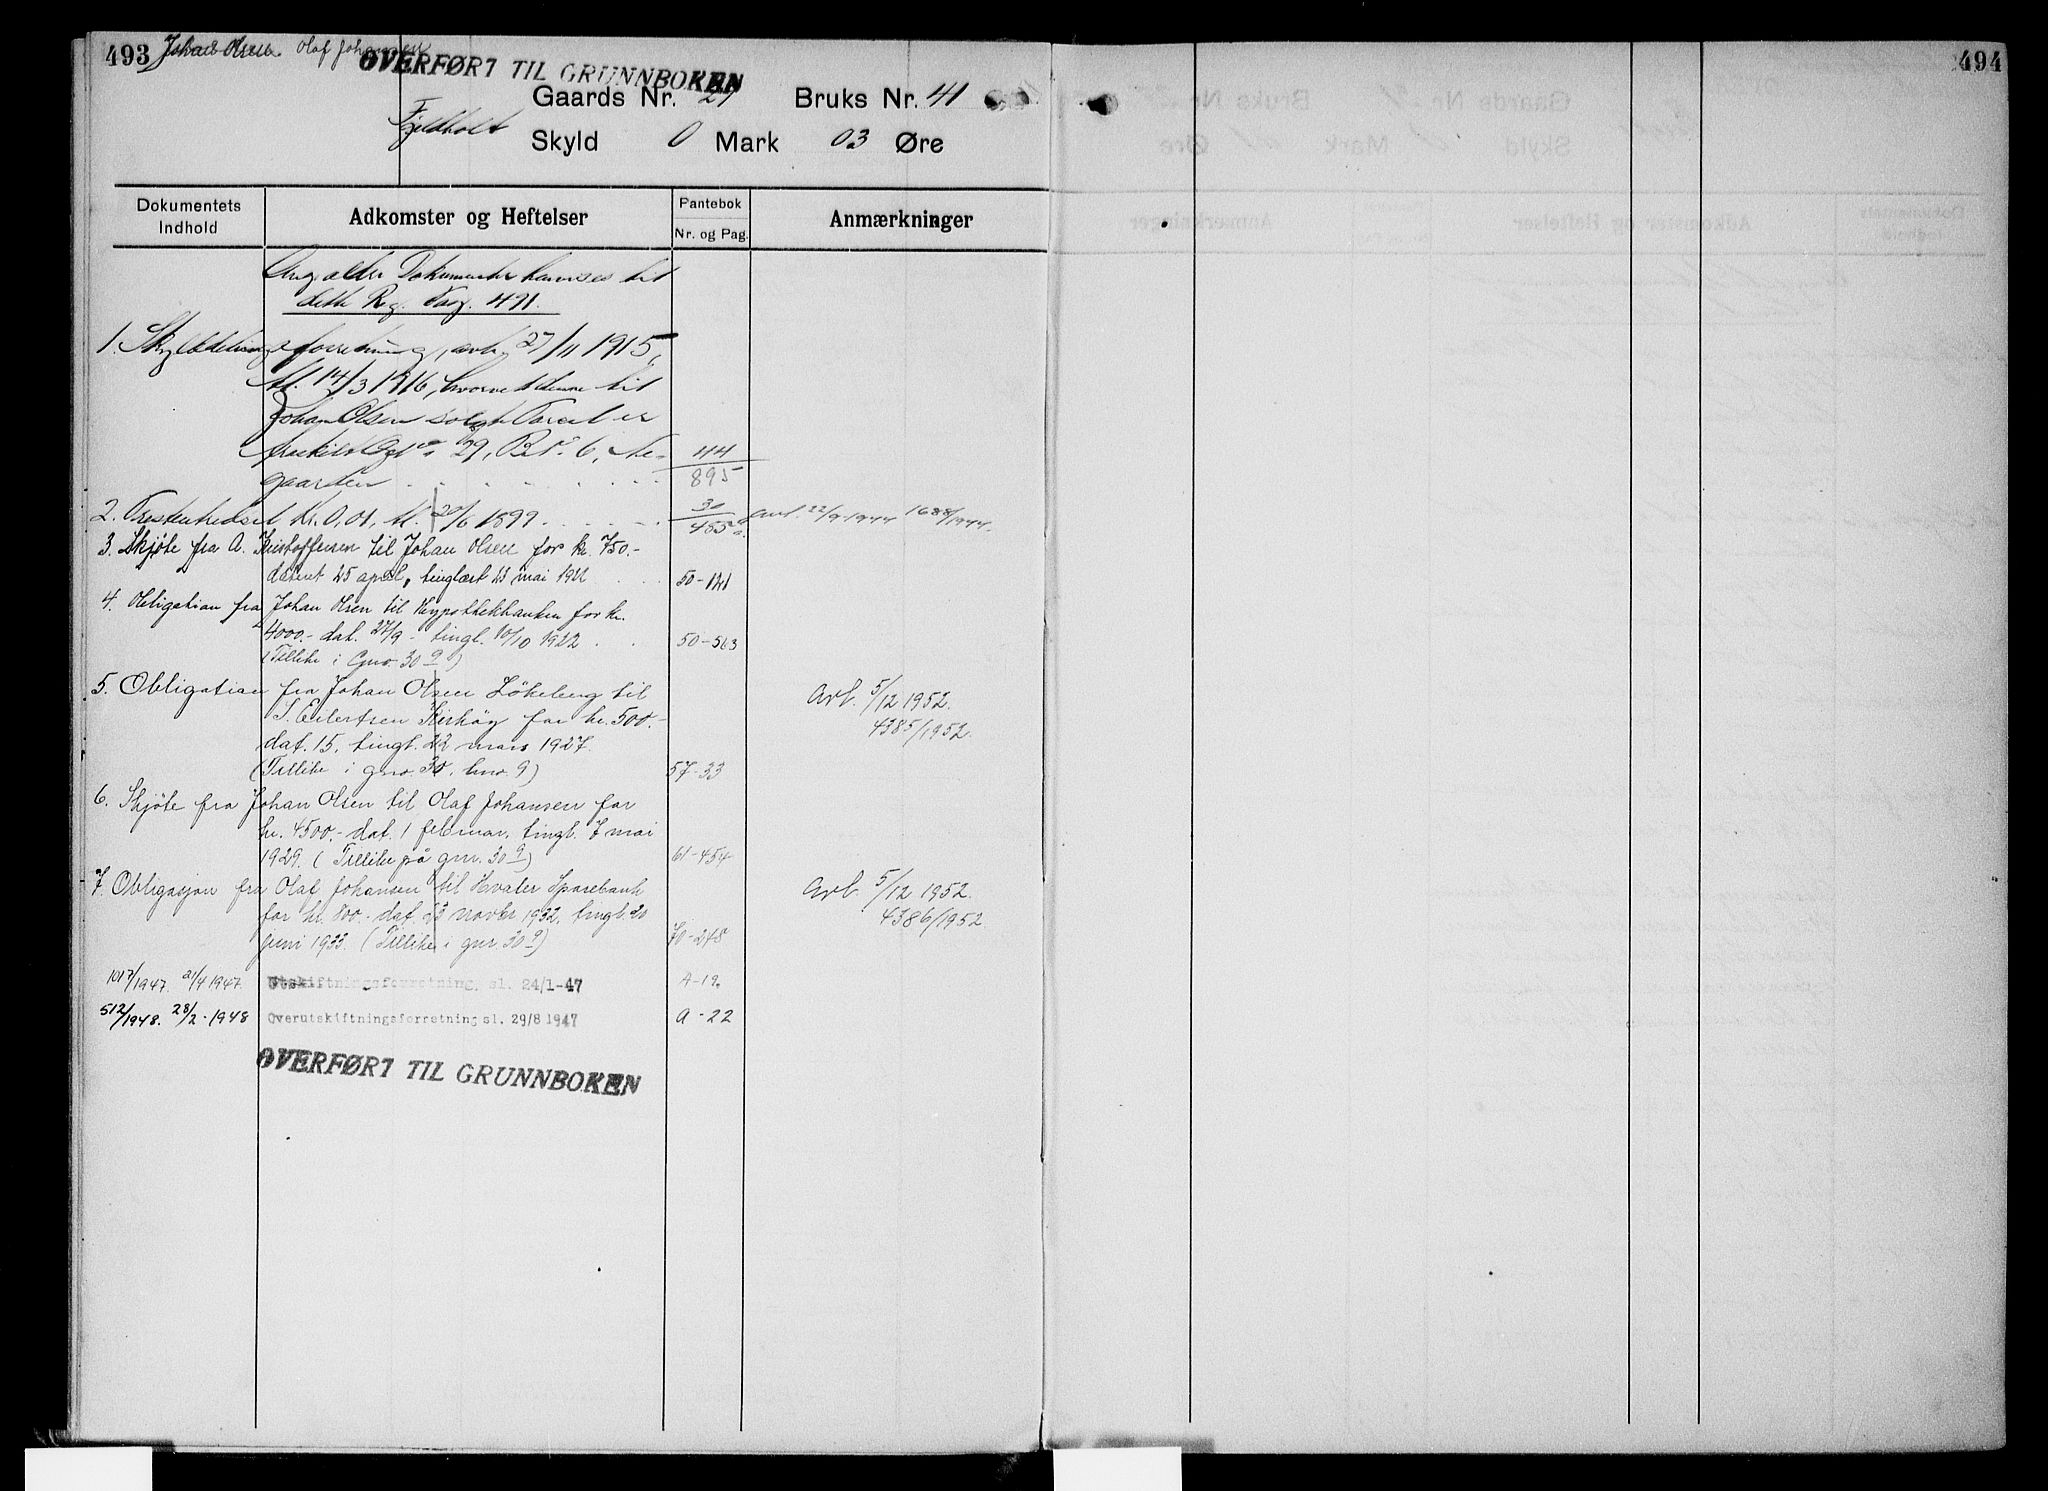 493 Johan Olsen Olaf Johansen
OVERFØRT TIL GRUNNBOKEN
Gaards Nr. 29 Bruks Nr. 41
Fjeldholt
Skyld 0 Mark 03 Øre
Dokumentets Indhold
Adkomster og Heftelser
Pantebok
Nr. og Pag.
Anmærkninger
Ang. ældre Dokumenter henvises til
dette Reg. Pag. 491.
1. Skylddelingsforretning, avh. 27/11 1915,
tl. 14/3 1916, hvorved denne til
Johan Olsen solgte Parcel er
fraskilt Gr. no. 29, Br. no. 6, Ne-
gaarden . . . . . . 44/895
2. Festeseddel Kr. 0,01, tl. 20/6 1899. . . . . 30/485 avl. 22/9-1944 1688/1944.
3. Skjøte fra A. Kristoffersen til Johan Olsen for kr. 750.-
dateret 25 april, tinglæst 23 mai 1922 . . 50-121
4. Obligation fra Johan Olsen til Hypothekbanken for kr.
4000.- dat. 27/9 - tingl. 10/10 1922 . . 50-563
(Tillike i Gno. 30 9)
5. Obligation fra Johan Olsen Løkeberg til
S. Eilertsen Kirkøy for kr. 500.-
dat. 15, tingl. 22 mars 1927.
(Tillike i gno. 30, bno. 9) 57-33
Avl. 5/12 1952.
4385/1952.
6. Skjøte fra Johan Olsen til Olaf Johansen for
kr. 4500.- dat. 1 februar, tingl. 7 mai
1929. (Tillike på gnr. 30 9) 61-454
7. Obligasjon fra Olaf Johansen til Hvaler Sparebank
for kr. 800.- dat. 23 novbr 1932, tingl. 20
juni 1933. (Tillike i gnr. 30 9) 70-248
Avl. 5/12 1952.
4386/1952
1017/1947. 21/4 1947 Utskiftningsforretning, sl. 24/1-47 A-19.
512/1948. 28/2-1948 Overutskiftningsforretning sl. 29/8 1947 A-22
OVERFØRT TIL GRUNNBOKEN
494